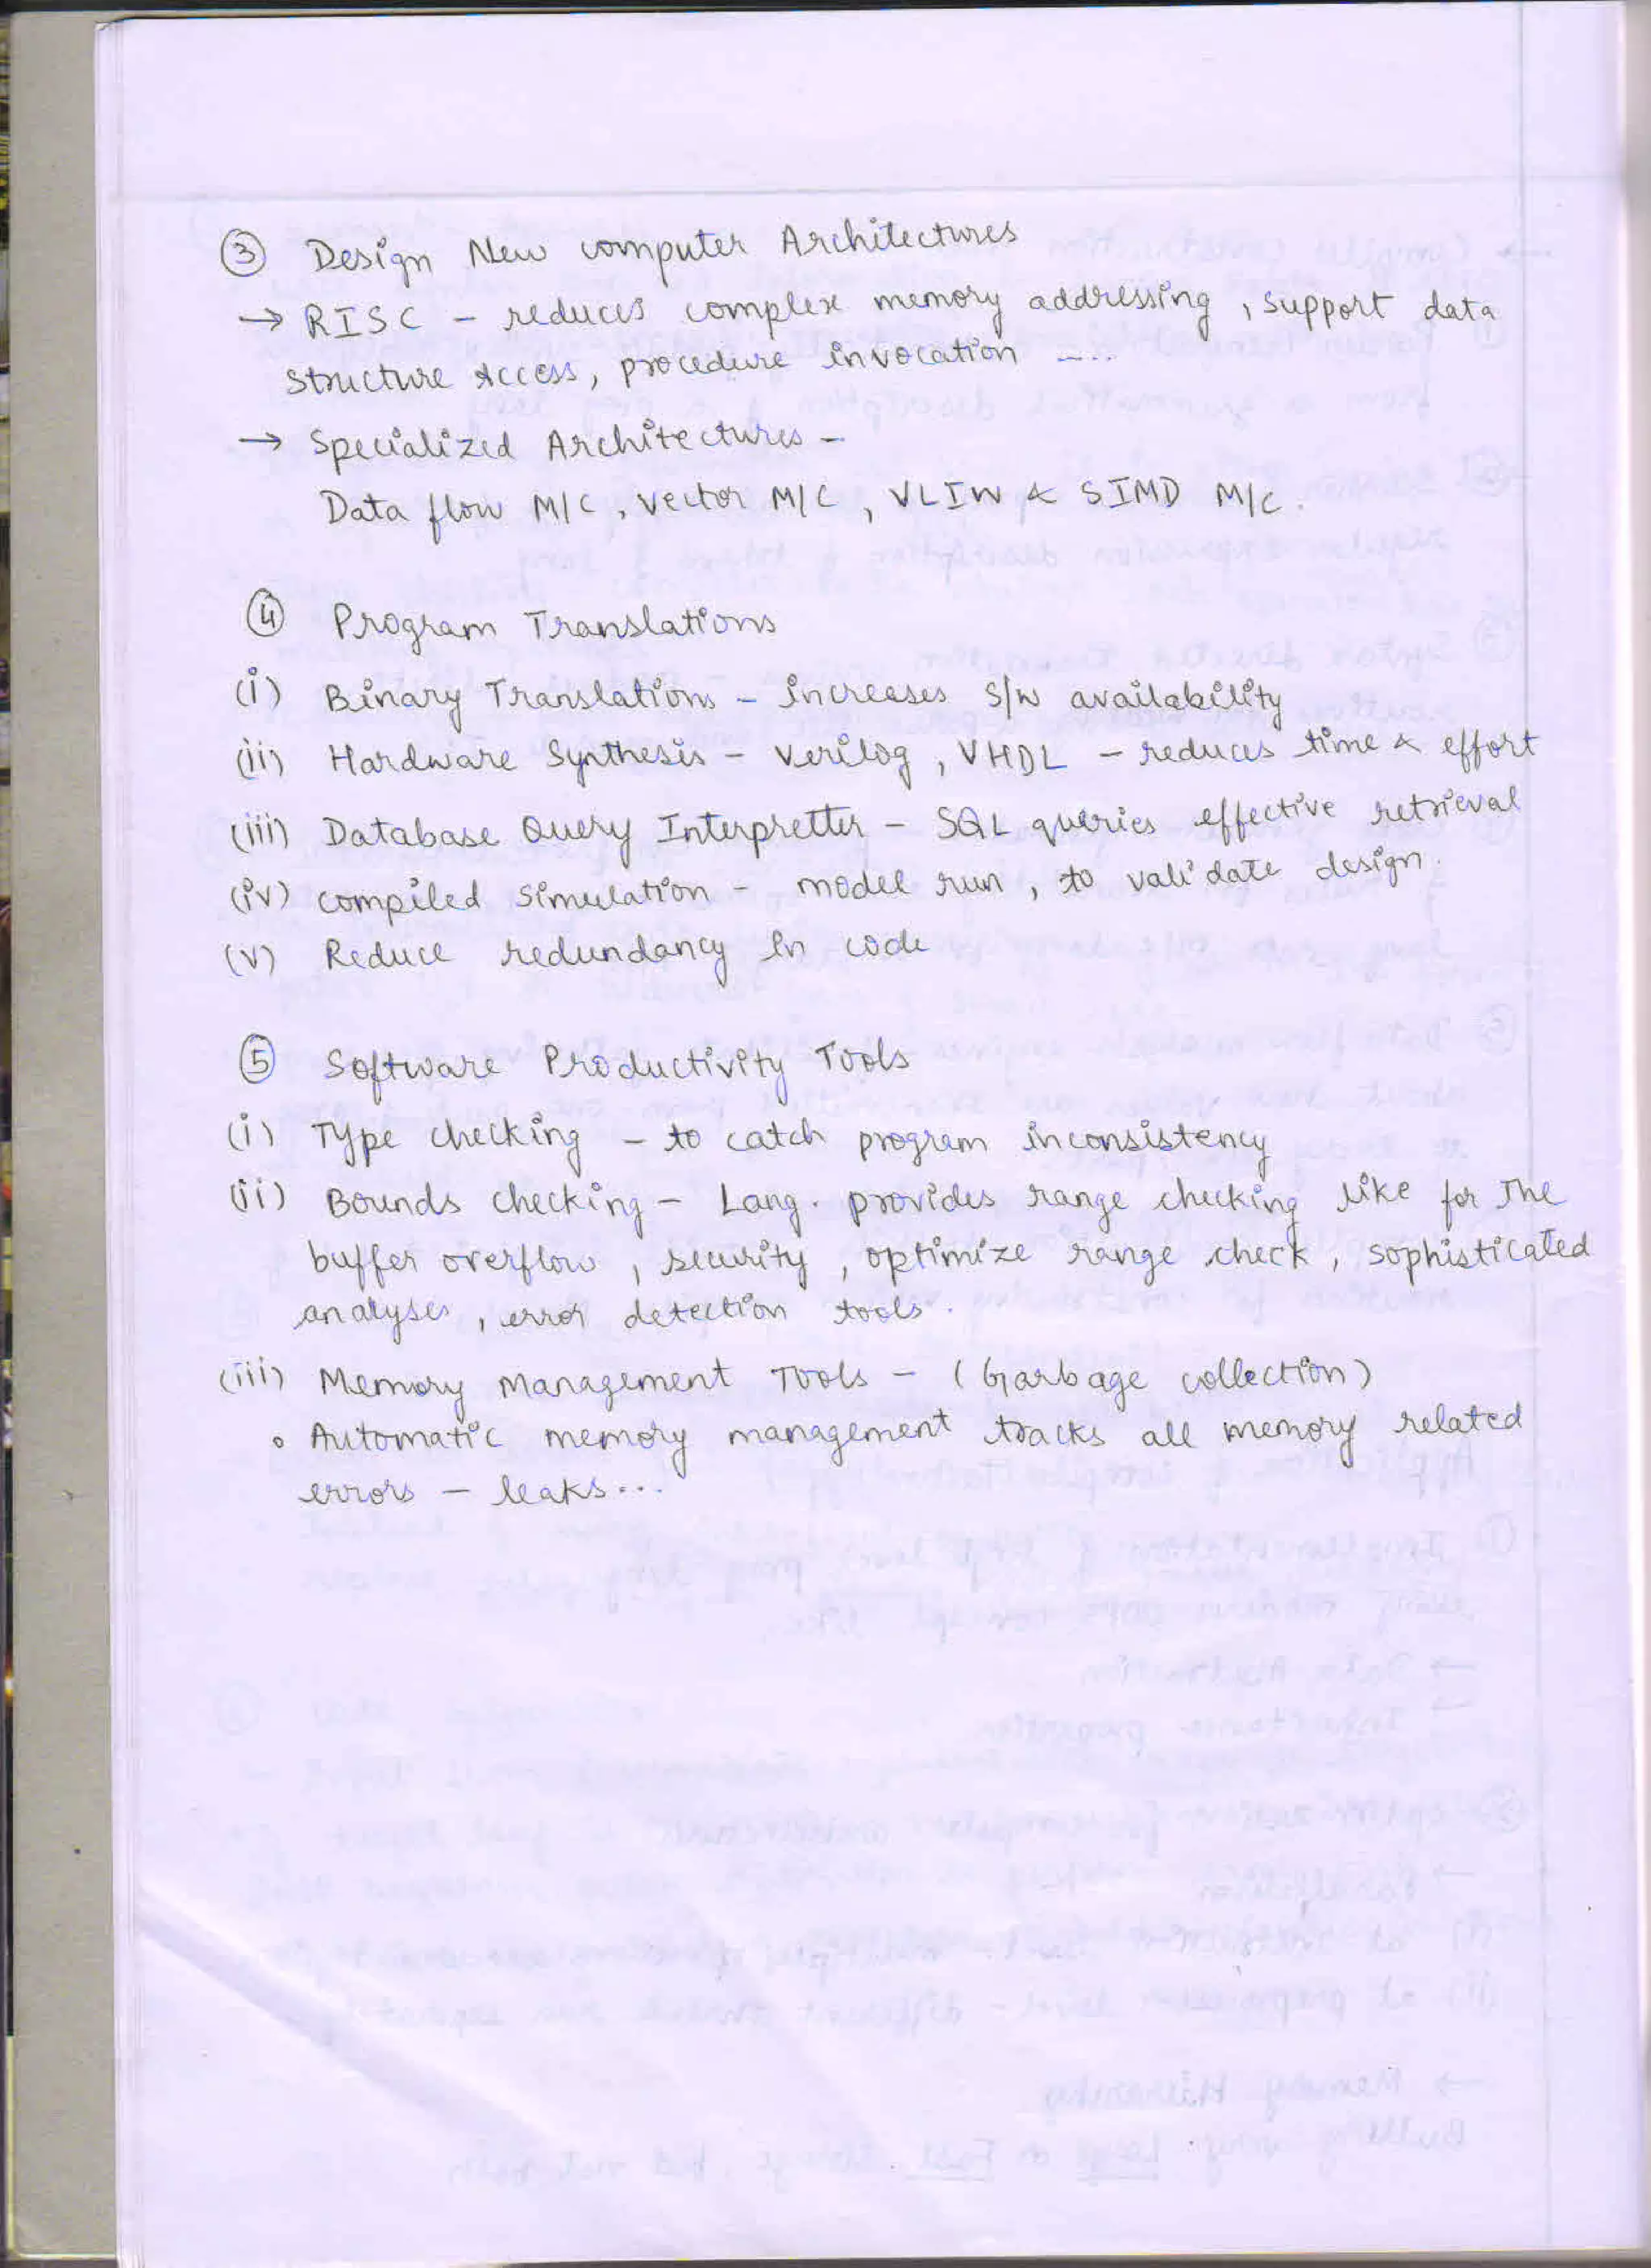 ③ Design New computer Architectures
→ RISC - reduces complex memory addressing, support data
structure access, procedure invocation ....
→ Specialized Architectures -
Data flow M/C, vector M/C, VLIW & SIMD M/C.
④ Program Translations
(i) Binary Translations - increases S/W availability
(ii) Hardware Synthesis - Verilog, VHDL - reduces time & effort
(iii) Database Query Interpretter - SQL queries effective retrieval
(iv) compiled simulation - model run, to validate design.
(v) Reduce redundancy in code
⑤ Software Productivity Tools
(i) Type checking - to catch program inconsistency
(ii) Bounds checking - Lang. provides range checking like for the
buffer overflow, security, optimize range check, sophisticated
analyses, error detection tools.
(iii) Memory Management Tools - (Garbage collection)
• Automatic memory management tracks all memory related
errors - leaks...